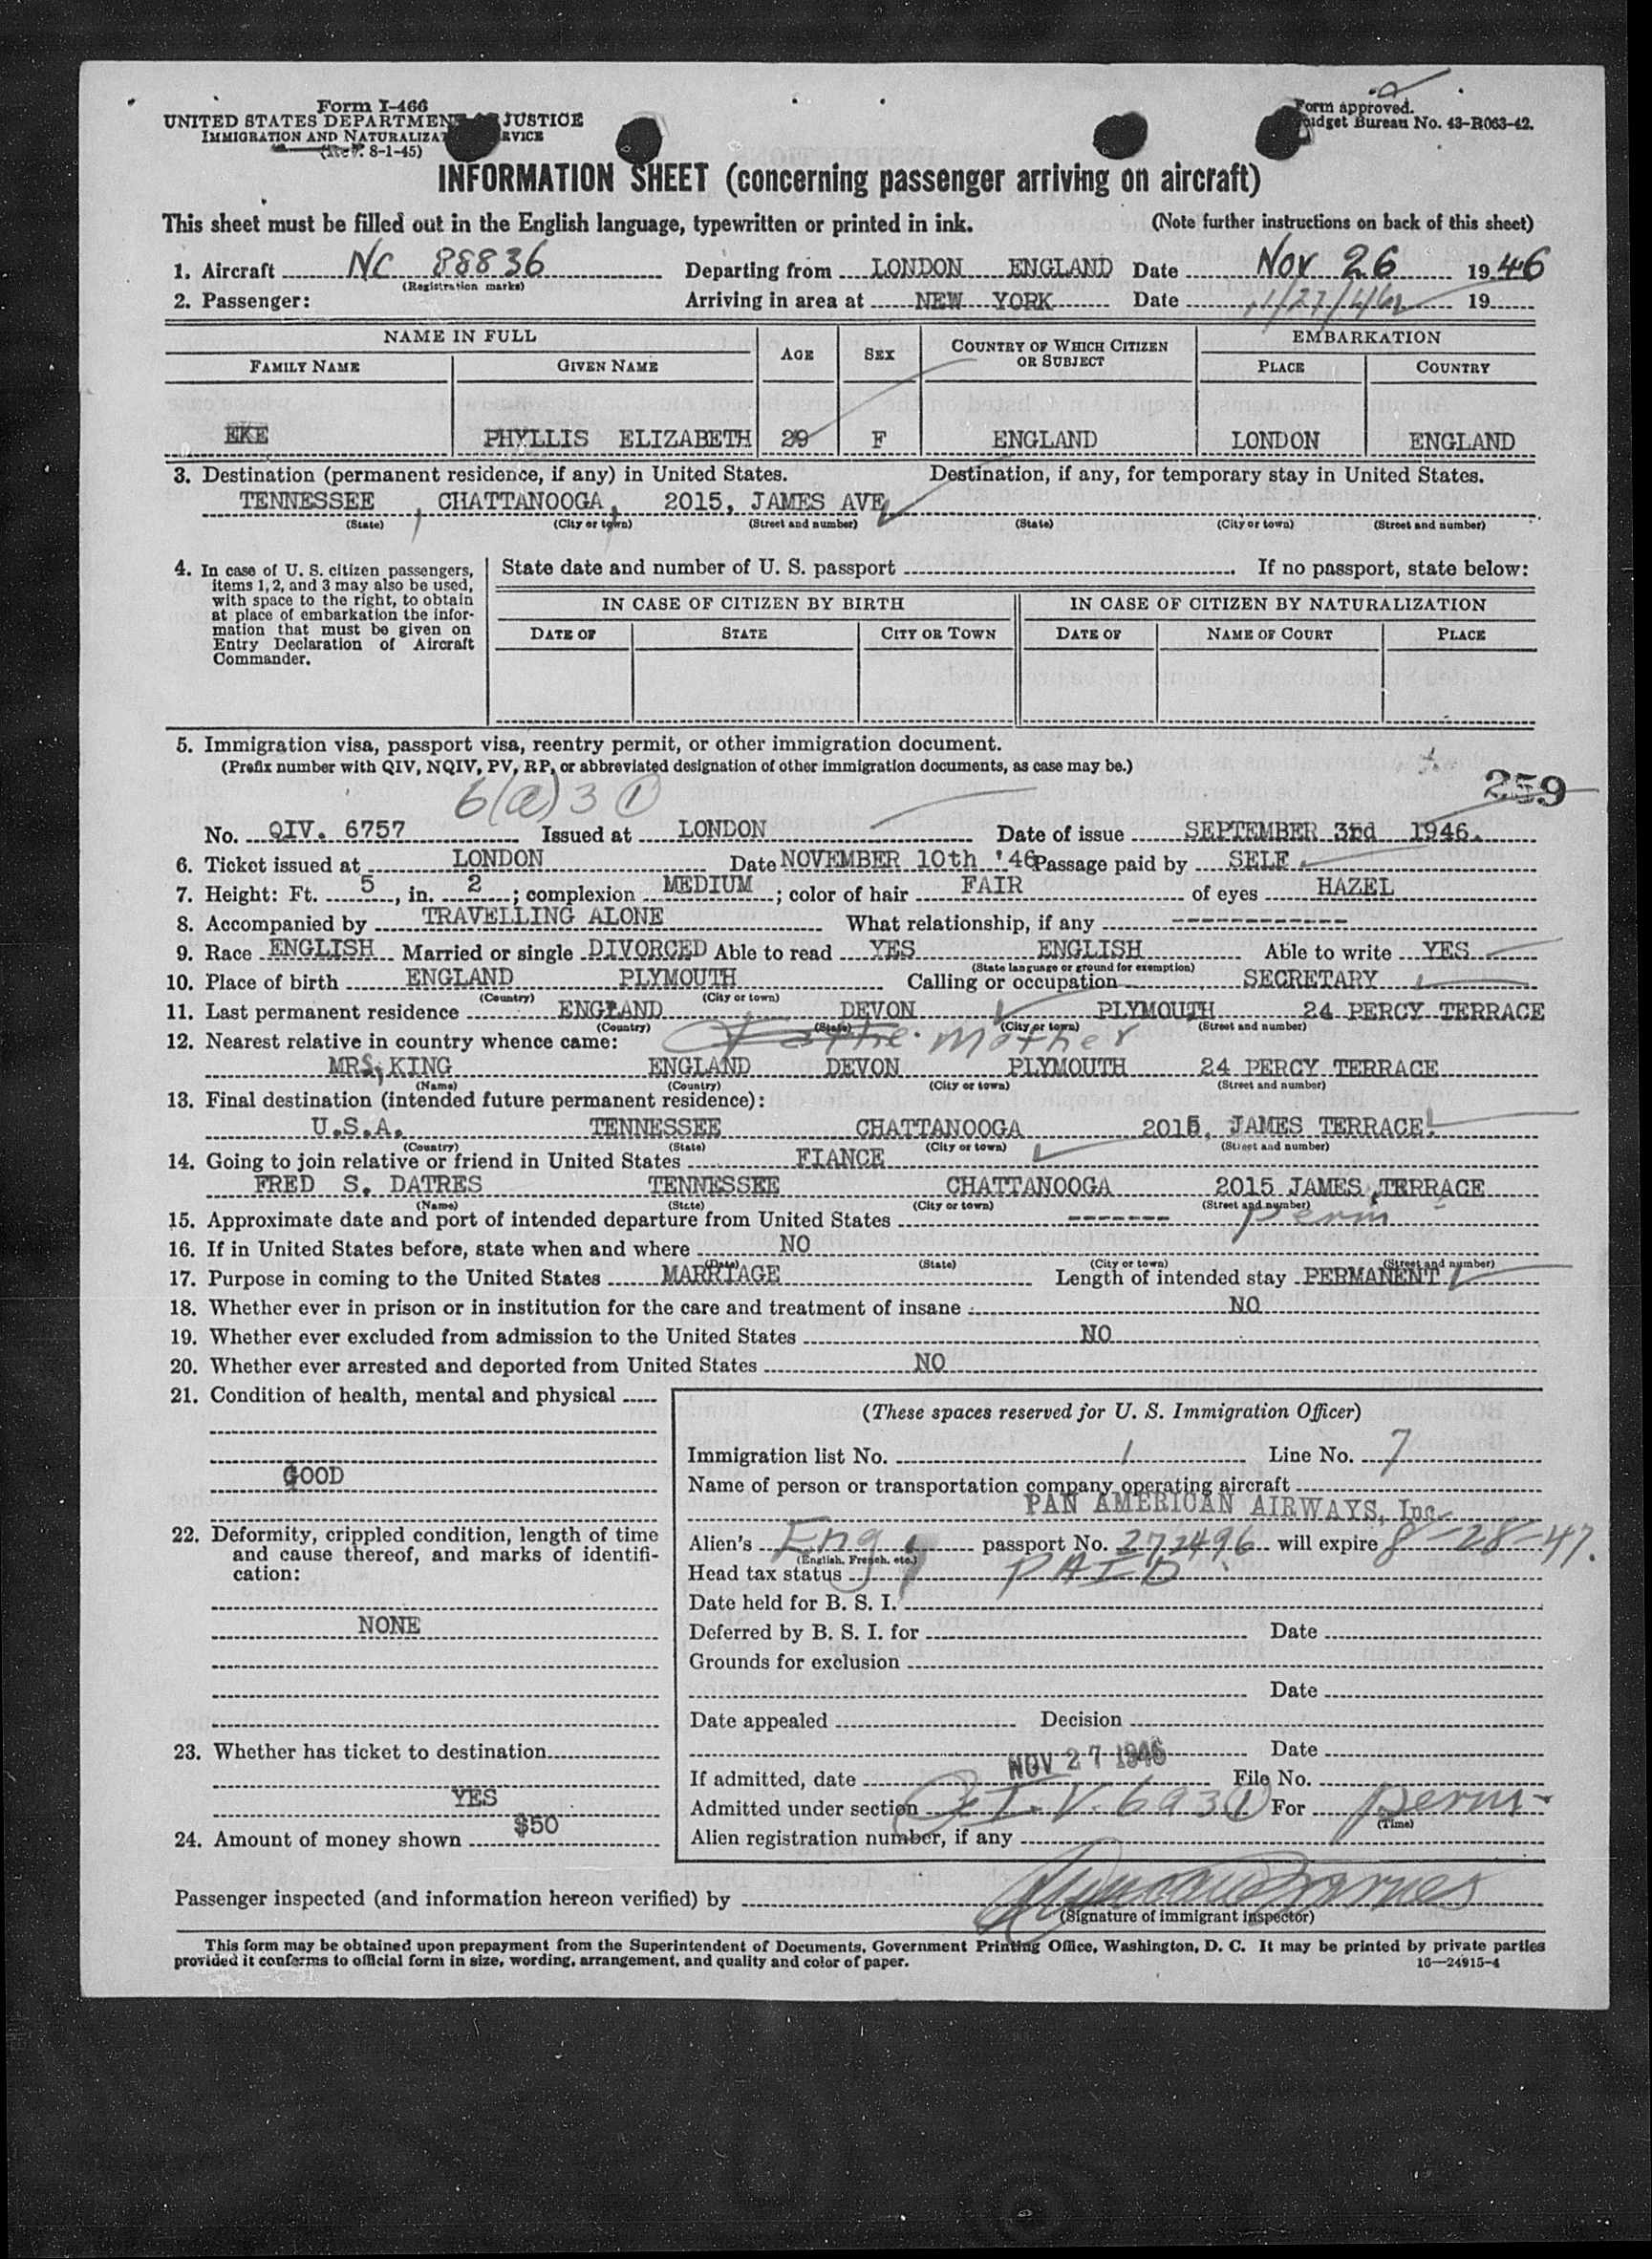 Form I-466
UNITED STATES DEPARTMENT JUSTICE
IMMIGRATION AND NATURALIZAT RVICE
(Rev. 8-1-45)
Form approved.
Budget Bureau No. 43-R063-42.
INFORMATION SHEET (concerning passenger arriving on aircraft)
This sheet must be filled out in the English language, typewritten or printed in ink. (Note further instructions on back of this sheet)
1. Aircraft NC 88836 Departing from LONDON ENGLAND Date Nov 26 1946
(Registration marks)
2. Passenger: Arriving in area at NEW YORK Date 11/27/46 19
NAME IN FULL AGE SEX COUNTRY OF WHICH CITIZEN OR SUBJECT EMBARKATION
FAMILY NAME GIVEN NAME PLACE COUNTRY
EKE PHYLLIS ELIZABETH 29 F ENGLAND LONDON ENGLAND
3. Destination (permanent residence, if any) in United States. Destination, if any, for temporary stay in United States.
TENNESSEE, CHATTANOOGA, 2015, JAMES AVE
(State) (City or town) (Street and number) (State) (City or town) (Street and number)
4. In case of U. S. citizen passengers,
items 1, 2, and 3 may also be used,
with space to the right, to obtain
at place of embarkation the infor-
mation that must be given on
Entry Declaration of Aircraft
Commander.
State date and number of U. S. passport If no passport, state below:
IN CASE OF CITIZEN BY BIRTH IN CASE OF CITIZEN BY NATURALIZATION
DATE OF STATE CITY OR TOWN DATE OF NAME OF COURT PLACE
5. Immigration visa, passport visa, reentry permit, or other immigration document.
(Prefix number with QIV, NQIV, PV, RP, or abbreviated designation of other immigration documents, as case may be.)
6(a)3 (1) 259
No. QIV. 6757 Issued at LONDON Date of issue SEPTEMBER 3rd 1946.
6. Ticket issued at LONDON Date NOVEMBER 10th '46 Passage paid by SELF.
7. Height: Ft. 5, in. 2; complexion MEDIUM; color of hair FAIR of eyes HAZEL
8. Accompanied by TRAVELLING ALONE What relationship, if any -------------
9. Race ENGLISH Married or single DIVORCED Able to read YES ENGLISH Able to write YES
(State language or ground for exemption)
10. Place of birth ENGLAND PLYMOUTH Calling or occupation SECRETARY
(Country) (City or town)
11. Last permanent residence ENGLAND DEVON PLYMOUTH 24 PERCY TERRACE
(Country) (State) (City or town) (Street and number)
12. Nearest relative in country whence came: Mother
MRS. KING ENGLAND DEVON PLYMOUTH 24 PERCY TERRACE
(Name) (Country) (City or town) (Street and number)
13. Final destination (intended future permanent residence):
U.S.A. TENNESSEE CHATTANOOGA 2015, JAMES TERRACE.
(Country) (State) (City or town) (Street and number)
14. Going to join relative or friend in United States FIANCE
FRED S. DATRES TENNESSEE CHATTANOOGA 2015 JAMES TERRACE
(Name) (State) (City or town) (Street and number)
15. Approximate date and port of intended departure from United States ------- perm
16. If in United States before, state when and where NO
(Date) (State) (City or town) (Street and number)
17. Purpose in coming to the United States MARRIAGE Length of intended stay PERMANENT
18. Whether ever in prison or in institution for the care and treatment of insane NO
19. Whether ever excluded from admission to the United States NO
20. Whether ever arrested and deported from United States NO
21. Condition of health, mental and physical
GOOD
22. Deformity, crippled condition, length of time
and cause thereof, and marks of identifi-
cation:
NONE
23. Whether has ticket to destination
YES
24. Amount of money shown $50
(These spaces reserved for U. S. Immigration Officer)
Immigration list No. 1 Line No. 7
Name of person or transportation company operating aircraft
PAN AMERICAN AIRWAYS, Inc.
Alien's Eng passport No. 272496 will expire 8-28-47.
(English, French, etc.)
Head tax status PAID
Date held for B. S. I.
Deferred by B. S. I. for Date
Grounds for exclusion
Date
Date appealed Decision
Date
If admitted, date NOV 27 1946 File No.
Admitted under section Q.I.V. 6a3(1) For perm-
(Time)
Alien registration number, if any
Passenger inspected (and information hereon verified) by
(Signature of immigrant inspector)
This form may be obtained upon prepayment from the Superintendent of Documents, Government Printing Office, Washington, D. C. It may be printed by private parties
provided it conforms to official form in size, wording, arrangement, and quality and color of paper. 16—24915-4